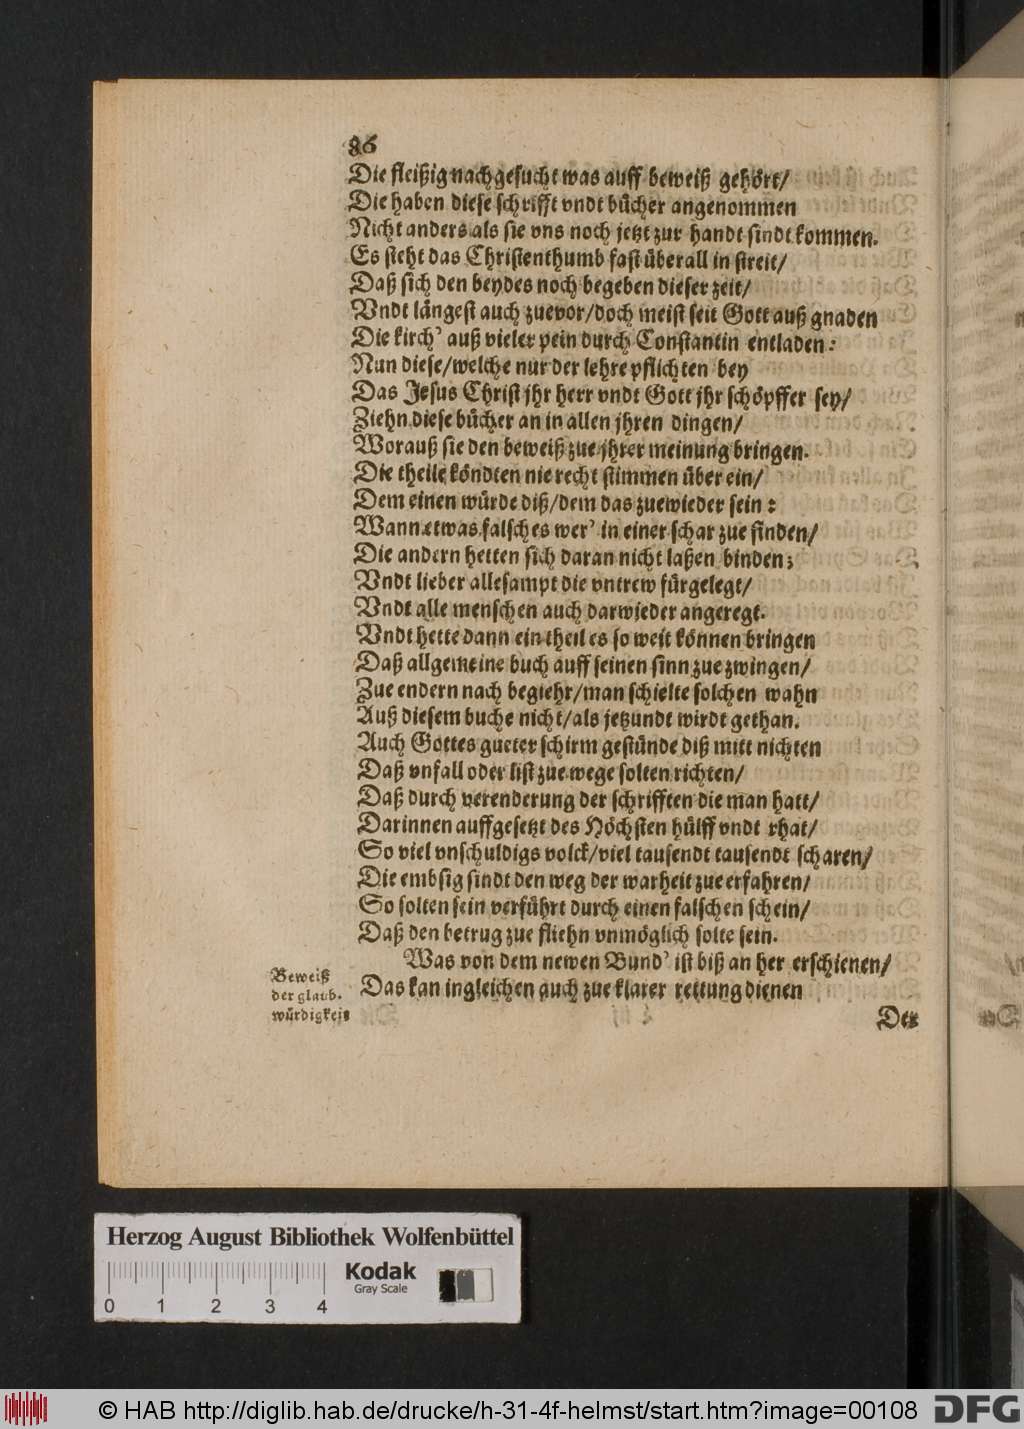 86
Die fleißig nachgesucht was auff beweiß gehört/
Die haben diese schrifft vndt bücher angenommen
Nicht anders als sie vns noch jetzt zur handt sindt kommen.
Es steht das Christenthumb fast überall in streit/
Daß sich den beydes noch begeben dieser zeit/
Vndt längest auch zuevor/doch meist seit Gott auß gnaden
Die kirch' auß vieler pein durch Constantin entladen:
Nun diese/welche nur der lehre pflichten bey
Das Jesus Christ jhr herr vndt Gott jhr schöpffer sey/
Ziehn diese bücher an in allen jhren dingen/
Worauß sie den beweiß zue jhrer meinung bringen.
Die theile köndten nie recht stimmen über ein/
Dem einen würde diß/dem das zuewieder sein:
Wann etwas falsches wer' in einer schar zue finden/
Die andern hetten sich daran nicht laßen binden;
Vndt lieber allesampt die vntrew fürgelegt/
Vndt alle menschen auch darwieder angeregt.
Vndt hette dann ein theil es so weit können bringen
Daß allgemeine buch auff seinen sinn zue zwingen/
Zue endern nach begiehr/man schielte solchen wahn
Auß diesem buche nicht/als jetzundt wirdt gethan.
Auch Gottes gueter schirm gestünde diß mitt nichten
Daß vnfall oder list zue wege solten richten/
Daß durch verenderung der schrifften die man hatt/
Darinnen auffgesetzt des Höchsten hülff vndt rhat/
So viel vnschuldigs volck/viel tausendt tausendt scharen/
Die embsig sindt den weg der warheit zue erfahren/
So solten sein verführt durch einen falschen schein/
Daß den betrug zue fliehn vnmöglich solte sein.
Was von dem newen Bund' ist biß an her erschienen/
Beweiß
der glaub.
würdigkeit
Das kan ingleichen auch zue klarer rettung dienen
Der
Herzog August Bibliothek Wolfenbüttel
0 1 2 3 4
Kodak
Gray Scale
© HAB http://diglib.hab.de/drucke/h-31-4f-helmst/start.htm?image=00108
DFG